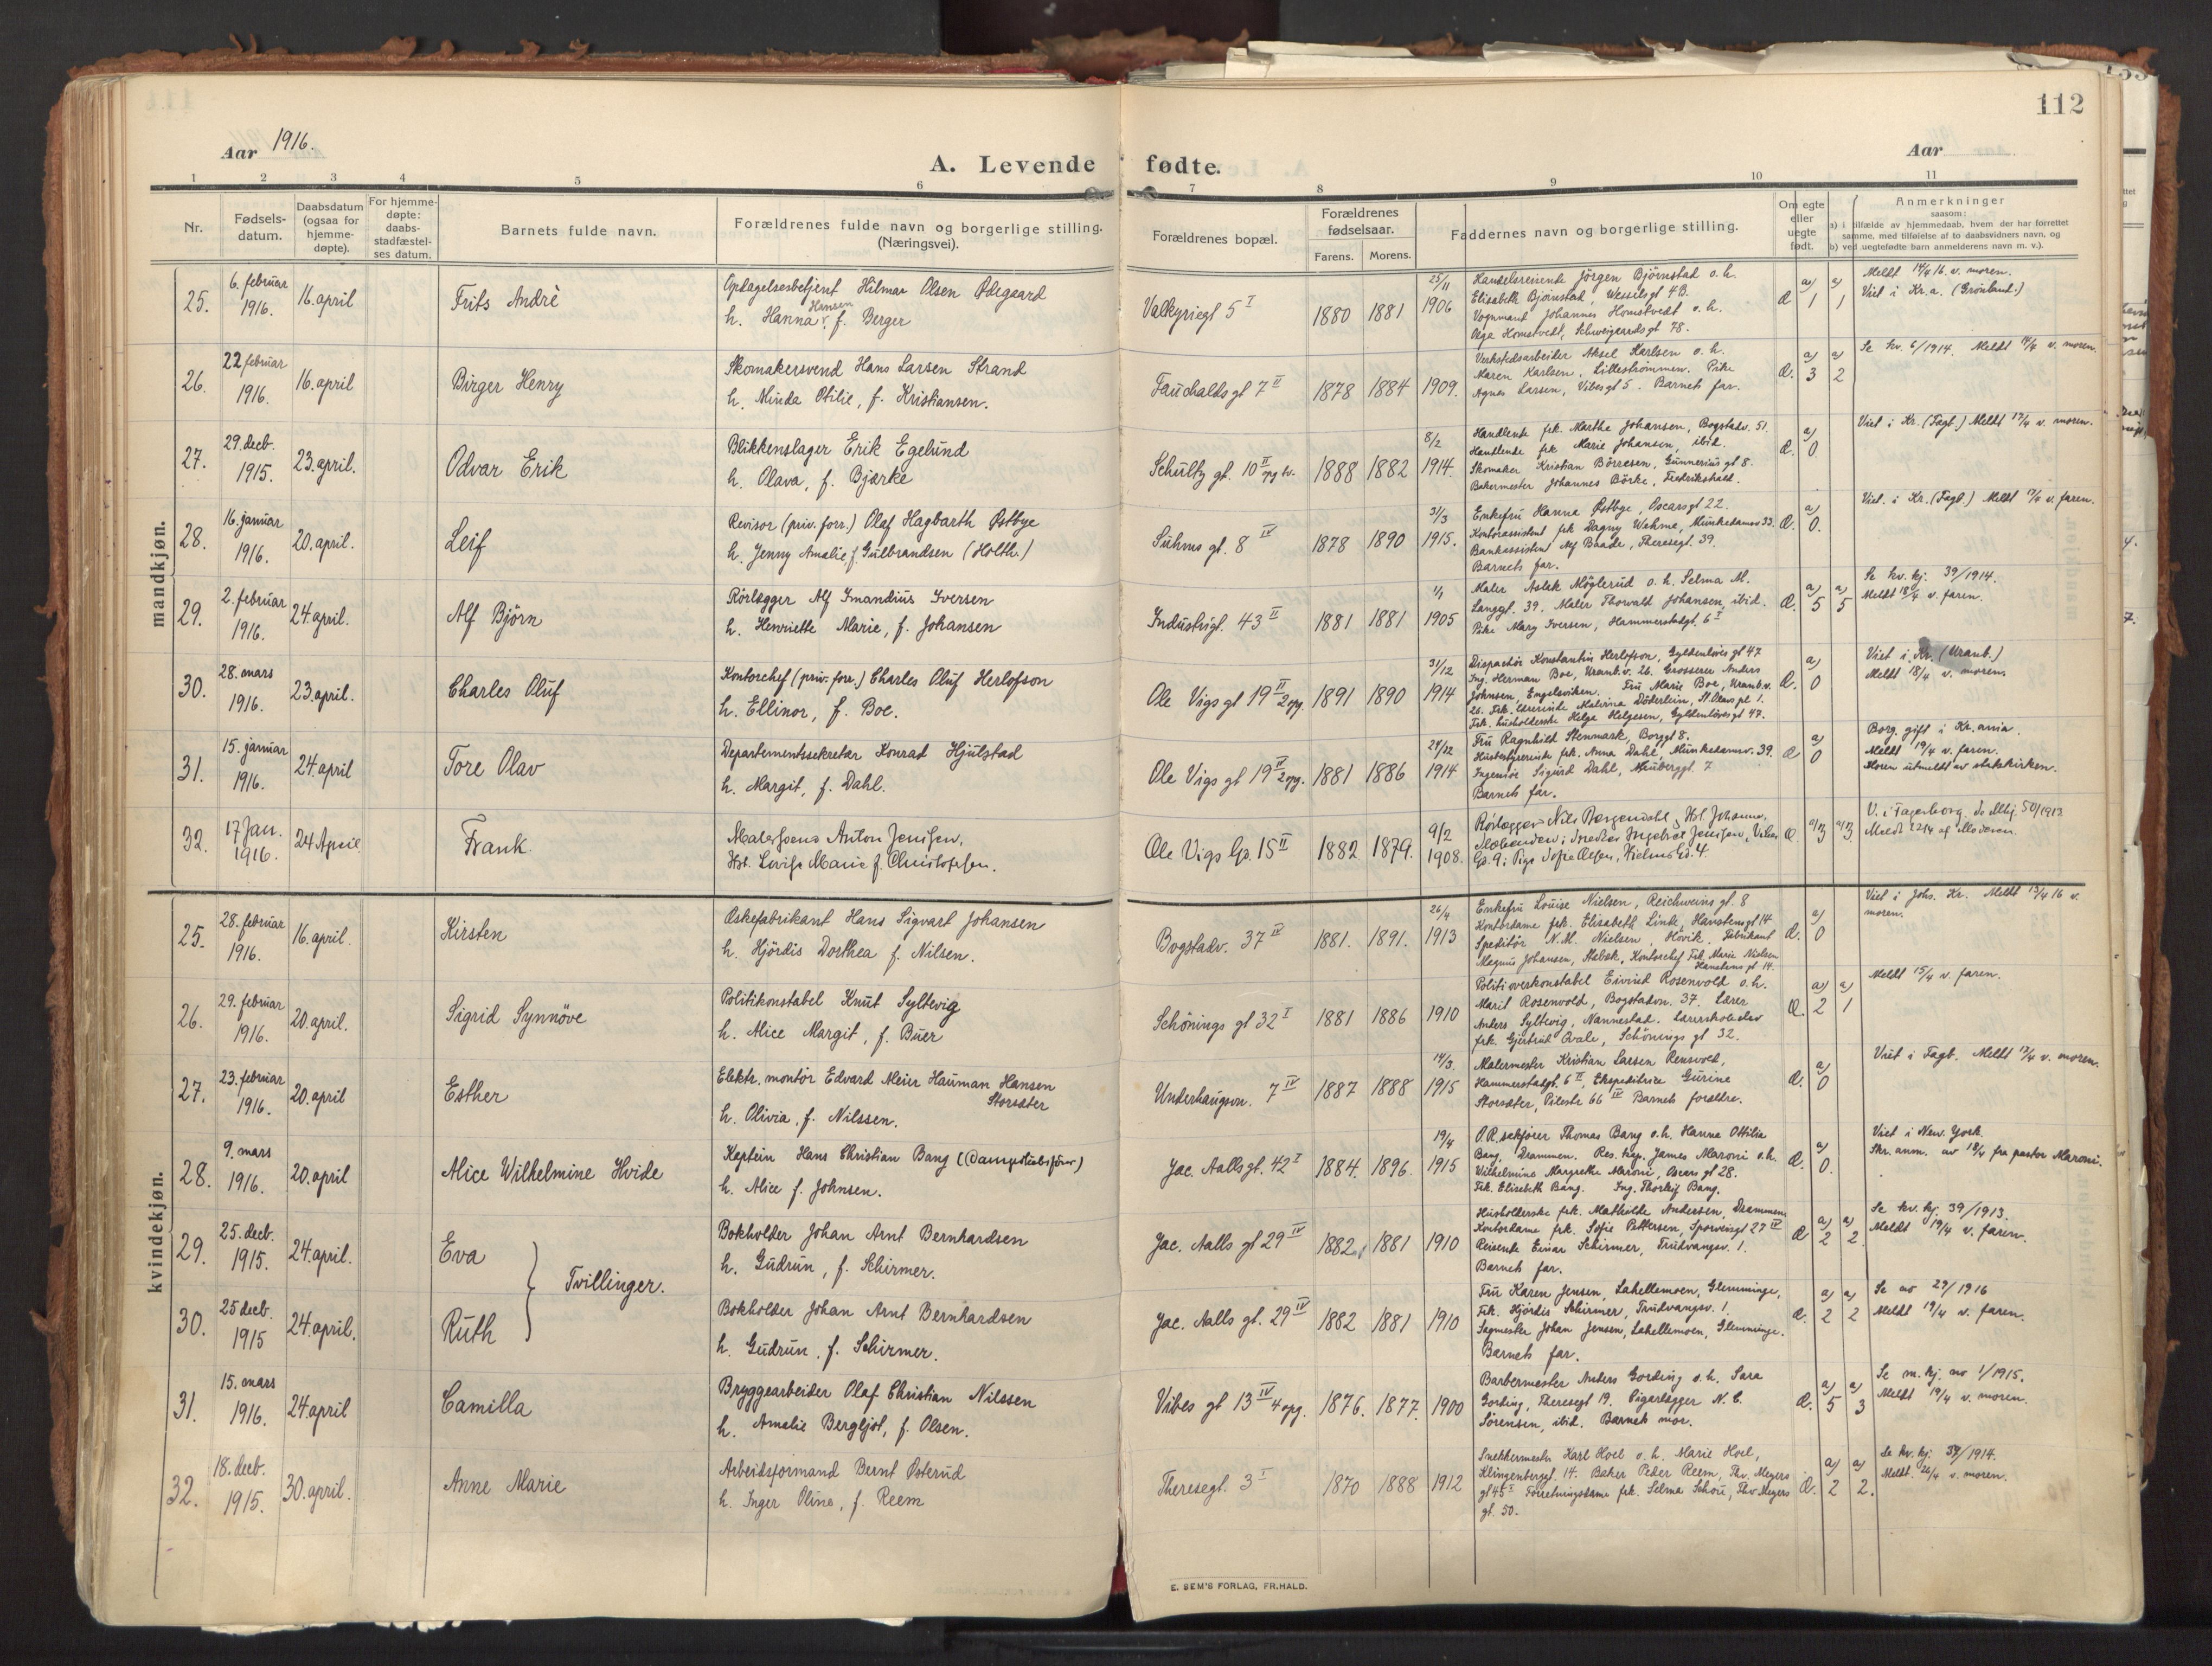 112
Aar 1916.
Aar
A. Levende fødte.
1 2 3 4 5 6 7 8 9 10 11
Nr.
Fødsels-
datum.
Daabsdatum
(ogsaa for
hjemme-
døpte).
For hjemme-
døpte:
daabs-
stadfæstel-
ses datum.
Barnets fulde navn.
Forældrenes fulde navn og borgerlige stilling.
(Næringsvei).
Forældrenes bopæl.
Forældrenes
fødselsaar.
Farens. Morens.
Faddernes navn og borgerlige stilling.
Om egte
eller
uegte
født.
Anmerkninger
saasom:
a) i tilfælde av hjemmedaab, hvem der har forrettet
samme, med tilføielse af to daabsvidners navn, og
b) ved uegtefødte barn anmelderens navn m. v.).
mandkjøn.
25. 6. februar 1916. 16. april Frits Andrè
Opdagelsesbetjent Hilmar Olsen Ødegaard
h. Hanna Hansen f. Berger
Valkyriegt 5 I 1880 1881 25/11 1906
Handelsreisende Jörgen Bjørnstad o. h.
Elisabeth Bjørnstad, Wesselsgt 4B.
Vognmand Johannes Homstvedt o. h.
Olga Homstvedt, Schweigaardsgt 78.
Æ a) 1 a) 1
Meldt 14/4 16. v. moren.
Viet i Kr.a. (Grönland.)
26. 22 februar 1916. 16. april Birger Henry
Skomakersvend Hans Larsen Strand
h. Minda Otilie, f. Kristiansen.
Fauchaldsgt 7 II 1878 1884 1909.
Verkstedsarbeider Aksel Karlsen o. h.
Maren Karlsen, Lilleströmmen. Pike
Agnes Larsen, Vibesgt 5. Barnets far.
Æ. a) 3 a) 2
Se kv. 6/1914. Meldt 14/4 v. moren.
27. 29. decb. 1915. 23. april. Odvar Erik
Blikkenslager Erik Egelund
h. Olava, f. Bjærke
Schultz gt. 10 II 1888 1882 8/2 1914.
Handlende frk. Marthe Johansen, Bogstadv. 51.
Handlende frk Marie Johansen, ibid.
Skomaker Kristian Börresen, Gunnerius gt 8.
Bakermester Johannes Börke, Fredrikshald.
Æ. a) 0
Viet i Kr. (Fagb.) Meldt 17/4 v. moren.
28. 16. januar 1916. 20. april. Leif
Revisor (priv. forr.) Olaf Hagbarth Østbye
h. Jenny Amalie, f. Gulbrandsen (Holth.)
Suhms gt. 8 IV 1878 1890 31/3 1915.
Enkefru Hanna Østbye, Oscarsgt 22.
Kontorassistent frk Dagny Wehme, Munkedamsv 33.
Bankassistent Alf Baade, Theresegt. 39.
Barnets far.
Æ. a) 0.
Viet. i Kr. (Fagb.) Meldt v. faren.
29. 2. februar 1916. 24. april. Alf Bjørn
Rörlægger Alf Imandius Iversen
h. Henriette Marie, f. Johansen
Industrigt. 43 II 1881 1881 1/1 1905
Maler Aslak Möglerud o. h. Selma M.
Langgt. 39. Maler Thorvald Johansen, ibid.
Pike Mary Iversen, Hammerstadgt. 6 I
Æ. a) 5 a) 5
Se kv. kj. 39/1914.
Meldt 18/4 v. faren.
30. 28. mars 1916. 23. april. Charles Oluf
Kontorchef (priv. forr.) Charles Oluf Herlofson
h. Ellinor, f. Boe.
Ole Vigs gt 19 II 2 opg. 1891 1890 31/12 1914
Dispachör Konstantin Herlofson, Gyldenlöves gt 47
Ing. Herman Boe, Uranb.v. 26. Grosserer Anders
Johnsen, Engelsviken. Fru Marie Boe, Uranb.v.
26. Frk. lærerinde Malvina Döderlein, St. Olavs pl 1.
Frk. husholderske Helga Helgesen, Gyldenlövesgt 47.
Æ. a) 0
Viet i Kr. (Uranb.)
Meldt 18/4 v. moren.
31. 15. januar 1916. 24. april Tore Olav
Departementssekretær Konrad Hjulstad
h. Margit, f. Dahl.
Ole Vigs gt 19 IV 2 opg. 1881 1886 1914
Fru Ragnhild Stenmark, Borggt 8.
Husbestyrerinde frk. Anna Dahl, Munkedamsv. 39.
Ingeniör Sigurd Dahl, Neuberggt. 7
Barnets far.
Æ a) 0
Borg. gift i Kr.ania.
Meldt 19/4 v. faren.
Moren utmeldt av statskirken.
32. 17 Jan. 1916. 24 April Frank
Malersvend Anton Jenssen,
Hst. Lovise Marie f. Christofersen.
Ole Vigs Gt. 15 II 1882. 1879. 9/2 1908.
Rørlægger Nils Bergendahl, Hst. Johanne,
Snedker Ingebret Jenssen, Vibes
Gt. 9; Pige Sofie Olsen, Hjelms Gd. 4.
Æ
V. i Fagerborg. 50/1913
Meldt 22/4 af Moderen.
kvindekjøn.
25. 28. februar 1916. 16. april. Kirsten
Æskefabrikant Hans Sigvart Johansen
h. Hjördis Dorthea f. Nilsen.
Bogstadv. 37 IV 1881. 1891. 26/4 1913
Enkefru Louise Nielsen, Reichweins gt. 8
Kontordame frk. Elisabeth Linde, Hanstensgt 14
Speditör N. M. Nielsen, Hövik. Fabrikant
Magnus Johansen, Stabæk, Kontorchef Frk. Marie Nielsen
Hanstens gt 14.
Æ. a) 0
Viet i Johs. Kr. Meldt 13/4 16 v.
moren.
26. 29. februar 1916. 20. april. Sigrid Synnöve
Politikonstabel Knut Syltevig
h. Alice Margit, f. Buer
Schönings gt 32 I 1881 1886 1910
Politioverkonstabel Eivind Rosenvold o. h.
Marit Rosenvold, Bogstadvn. 37. Lærer
Anders Syltevig, Nannestad. Lærerskoleelev
frk. Gjertrud Kvale, Schönings gt 32.
Æ. a) 2 a) 1
Meldt 15/4 v. faren.
27. 23. februar 1916. 20. april Esther
Elektr. montör Edvard Meier Hauman Hansen
Storsæter
h. Olivia, f. Nilssen.
Underhaugsvn. 7 IV 1887 1888 14/3. 1915
Malermester Kristian Larsen Rensvold,
Hammerstadgt. 6 II, Ekspeditrice Gurine
Storsæter, Pilestr 66 IV Barnets forældre.
Æ. a) 0
Viet i Fagb. Meldt 17/4 v. moren.
28. 9. mars 1916. 20. april Alice Wilhelmine Hvide
Kaptein Hans Christian Bang (Dampskibsfører)
h. Alice f. Johnsen.
Jac. Aallsgt. 42 I 1884. 1896. 19/4 1915
O.R. sakfører Thomas Bang o. h. Hanna Ottilia
Bang, Drammen. Res. kap. James Maroni o. h.
Wilhelmine Margrethe Maroni, Oscars gt 28.
Frk. Elisabeth Bang. Ing. Thorleif Bang.
Æ. a) 0.
Viet i New. York.
Skr. anm. av 18/4 fra pastor Maroni.
29. 25. decb. 1915. 24. april. Eva
Tvillinger.
Bokholder Johan Arnt Bernhardsen
h. Gudrun, f. Schirmer.
Jac. Aalls gt 29 IV 1882 1881 1910
Husholderske frk. Mathilde Andersen, Drammen
Kontordame frk. Sofie Pettersen, Sporveisgt 27 IV
Reisende Einar Schirmer, Trudvangsv. 1.
Barnets far.
Æ a) 2 a) 2.
Se kv. kj. 39/1913.
Meldt 19/4 v. faren.
30. 25 decb. 1915 24. april. Ruth
Bokholder Johan Arnt Bernhardsen
h. Gudrun, f. Schirmer.
Jac. Aalls gt. 29 IV 1882 1881 1910
Fru Karen Jensen, Lahellemoen, Glemminge,
Frk. Hjördis Schirmer, Trudvangsv. 1.
Sagmester Johan Jensen, Lahellemoen, Glemminge.
Barnets far.
Æ. a) 2 a) 2
Se no 29/1916
Meldt 19/4 v. faren.
31. 15. mars 1916. 24. april Camilla
Bryggearbeider Olaf Christian Nilssen
h. Amalie Bergljot, f. Olsen.
Vibes gt 13 IV 4 opg. 1876. 1877. 1900
Barbermester Anders Gording o. h. Sara
Gording, Theresegt 19. Cigarlægger N. C.
Sörensen, ibid. Barnets mor.
Æ. a) 5 a) 3
Se m. kj. no 1/1915.
Meldt 19/4 v. moren.
32. 18. decb. 1915. 30. april. Anne Marie
Arbeidsformand Bernt Østerud
h. Inger Oline, f. Reem
Theresegt. 3 I 1870 1888 1912
Snekkermester Karl Hoel o. h. Marie Hoel,
Klingenberggt. 14. Baker Peder Reem, Thv. Meyers
gt 45 I Forretningsdame frk. Selma Schou, Thv Meyers
gt. 50.
Æ. a) 2 a) 2.
Se kv. kj. 39/1914.
Meldt. 26/4 v. moren.
E. SEM'S FORLAG, FR.HALD.